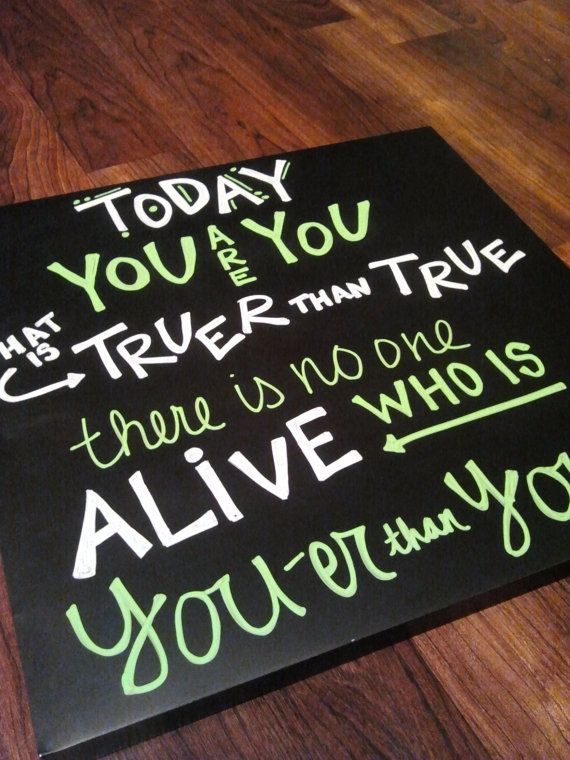 TODAY
YOU ARE YOU
HAT IS TRUER THAN TRUE
there is no one
ALiVE WHO IS
YOU-er than Yo